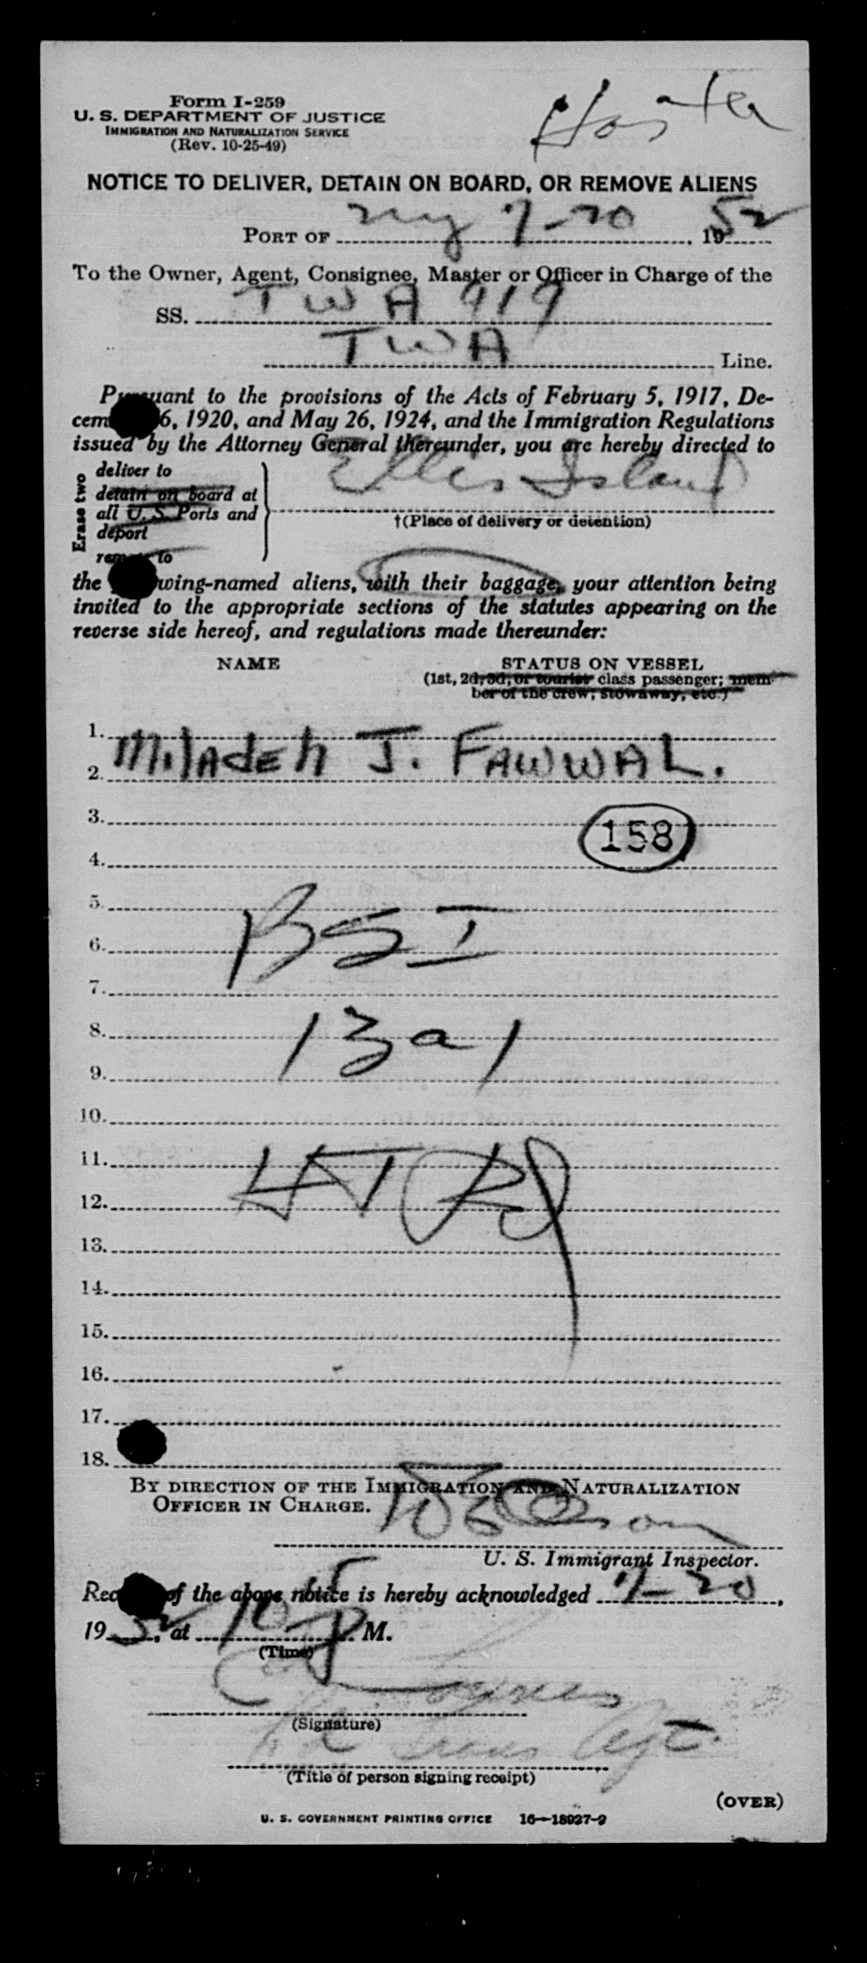 Form I-259
U. S. DEPARTMENT OF JUSTICE
IMMIGRATION AND NATURALIZATION SERVICE
(Rev. 10-25-49)
NOTICE TO DELIVER, DETAIN ON BOARD, OR REMOVE ALIENS
PORT OF ny 7-20, 1952
To the Owner, Agent, Consignee, Master or Officer in Charge of the
SS. TWA 919
TWA Line.
Pursuant to the provisions of the Acts of February 5, 1917, De-
cem 6, 1920, and May 26, 1924, and the Immigration Regulations
issued by the Attorney General thereunder, you are hereby directed to
Erase two
deliver to
detain on board at
all U. S. Ports and
deport
remove to
Ellis Island
†(Place of delivery or detention)
the wing-named aliens, with their baggage, your attention being
invited to the appropriate sections of the statutes appearing on the
reverse side hereof, and regulations made thereunder:
NAME STATUS ON VESSEL
(1st, 2d, 3d, or tourist class passenger; mem-
ber of the crew, stowaway, etc.)
1.
2. Miladeh J. FAWWAL.
3.
158
4.
5.
6. BSI
7.
8. 13a1
9.
10.
11.
12.
13.
14.
15.
16.
17.
18.
BY DIRECTION OF THE IMMIGRATION AND NATURALIZATION
OFFICER IN CHARGE.
U. S. Immigrant Inspector.
Rec of the above notice is hereby acknowledged 7-20,
1952, at P M.
(Time)
(Signature)
Agt.
(Title of person signing receipt)
(OVER)
U. S. GOVERNMENT PRINTING OFFICE 16—18927-2